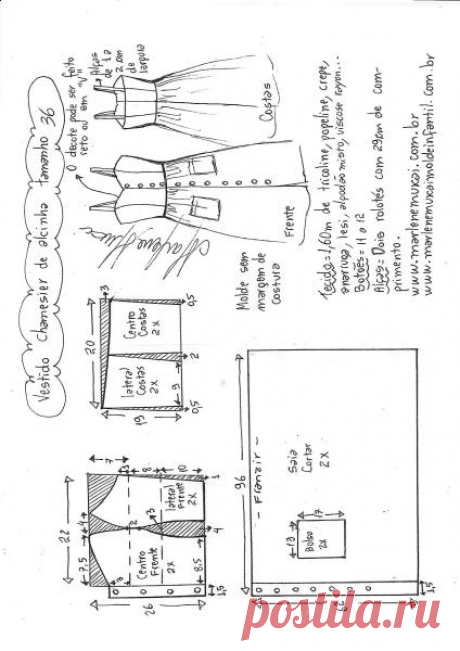 Vestido Chamesier de alcinha tamanho 36
O decote pode ser feito
reto ou em "V"
Alças de 1 a
2 cm
de
largura
Costas
Frente
Marlene Mukai
Molde sem
margem de
costura
Tecido = 1,60m de tricoline, popeline, crepe,
anarruga, lesi, algodão misto, viscose rayon...
Botões = 11 a 12
Alças = Dois rolotês com 29cm de com-
primento.
www.marlenemukai.com.br
www.marlenemukaimoldeinfantil.com.br
20
3
0,5
Centro
Costas
2x
2
lateral
Costas
2x
9
19
0,5
22
7
4
7,5
3
8
10
1
lateral
Frente
2x
2
3
4
Centro
Frente
2x
8,5
26
1,5
96
- Franzir -
Saia
Cortar
2x
17
13
Bolso
2x
1,5
postila.ru